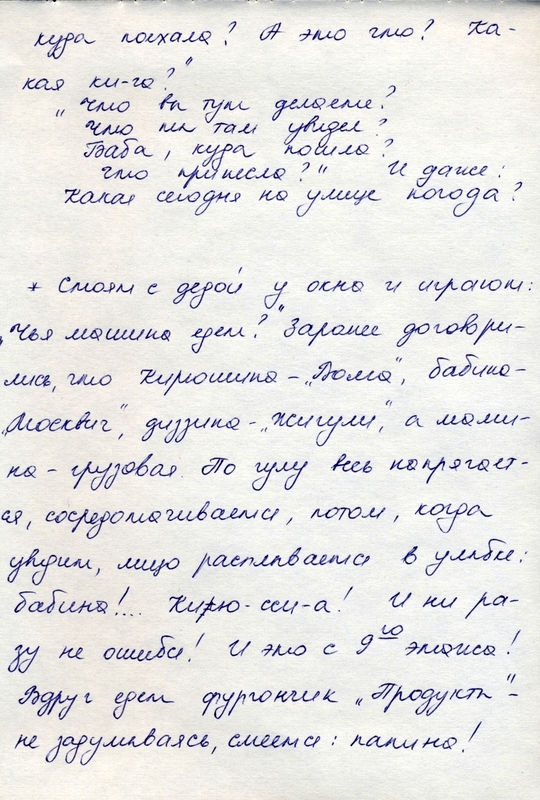 куда поехала? А это что? Ка-
кая кни-га?"
„Что вы тут делаете?
Что ты там увидел?
Баба, куда пошла?
Что принесла?" И даже:
Какая сегодня на улице погода?
* Стоят с дедой у окна и играют:
„Чья машина едет?" Заранее договори-
лись, что Кирюшина – „Волга", бабина –
„Москвич", диззина – „Жигули", а мами-
на – грузовая. По гулу весь напрягает-
ся, сосредотачивается, потом, когда
увидит, лицо расплывается в улыбке:
бабина!... Кирю-сси-а! И ни ра-
зу не ошибся! И это с 9го этажа!
Вдруг едет фургончик „Продукты" –
не задумываясь, смеется: папина!